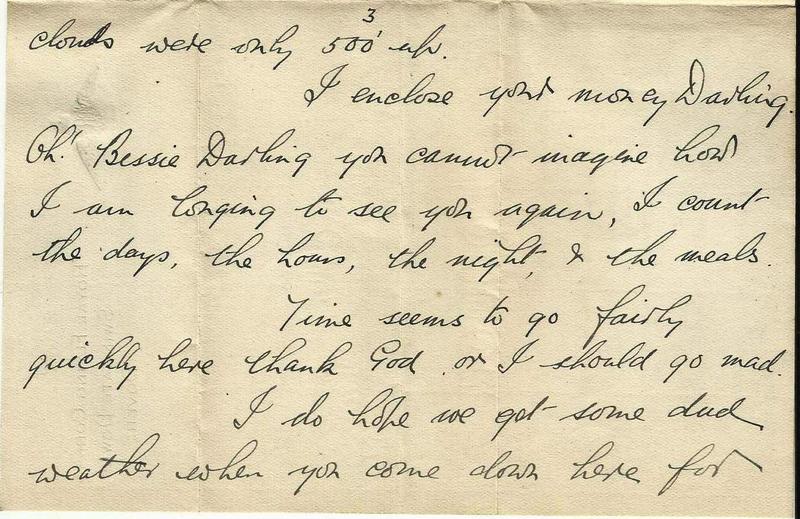 3
clouds were only 500' up.
I enclose your money Darling.
Oh! Bessie Darling you cannot imagine how
I am longing to see you again, I count
the days, the hours, the night, & the meals.
Time seems to go fairly
quickly here thank God or I should go mad.
I do hope we get some dud
weather when you come down here for